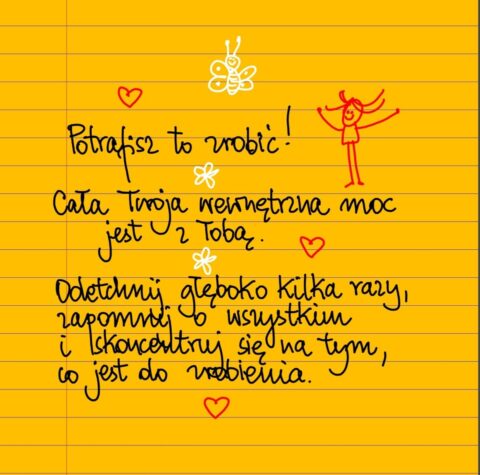 Potrafisz to zrobić!
Cała Twoja wewnętrzna moc
jest z Tobą.
Odetchnij głęboko kilka razy,
zapomnij o wszystkim
i skoncentruj się na tym,
co jest do zrobienia.